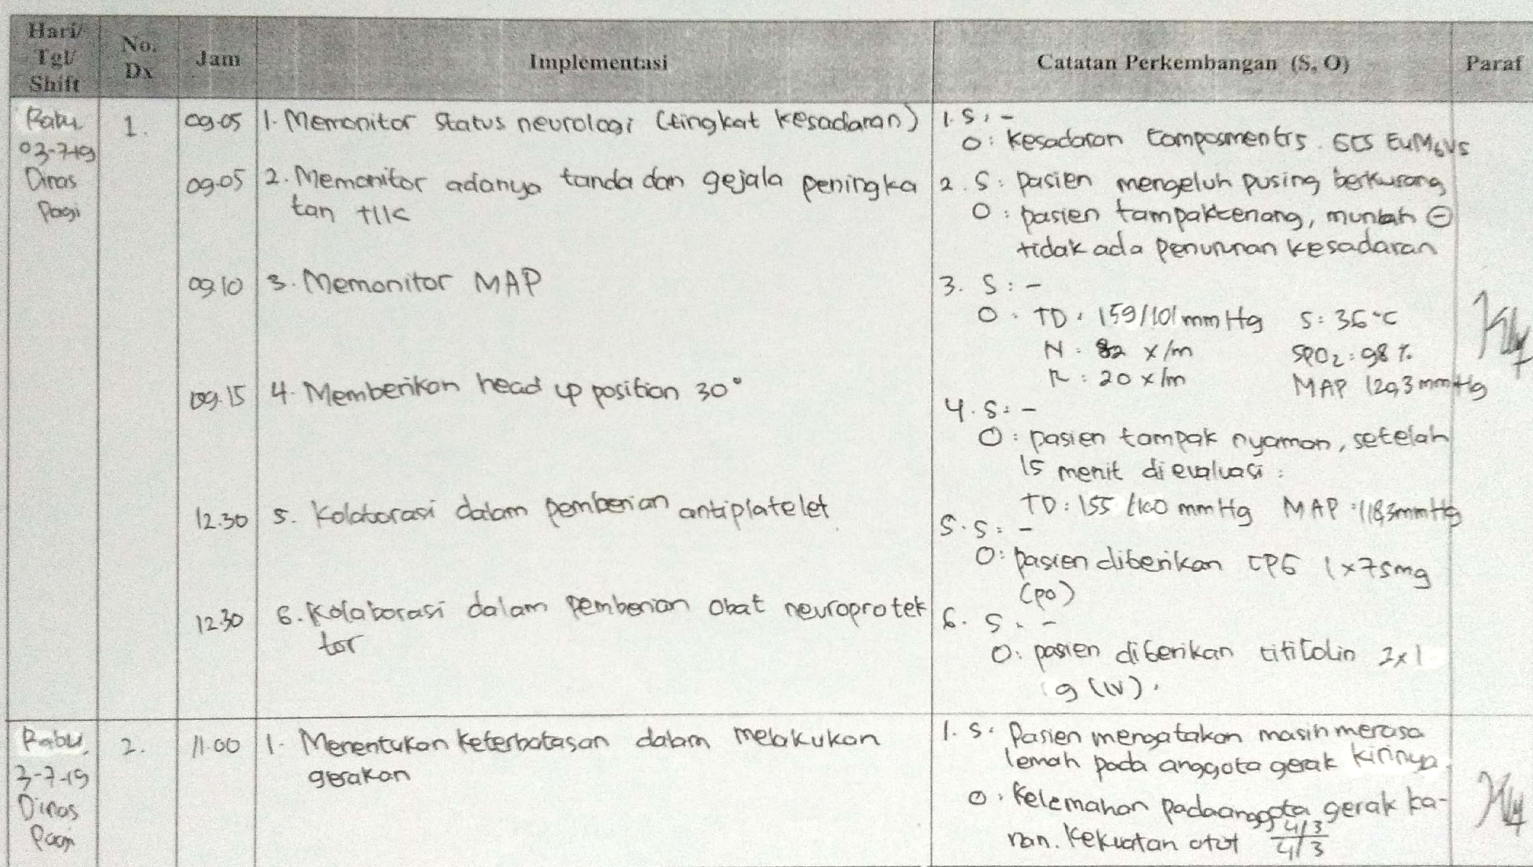 Hari/
Tgl/
Shift
No.
Dx
Jam
Implementasi
Catatan Perkembangan (S, O)
Paraf
Rabu
03-7-19
Dinas
Pagi
1.
09.05
1. Memonitor status neurologi (tingkat kesadaran)
1. S: -
O: Kesadaran composmentis. GCS E4M6V5
09.05
2. Memonitor adanya tanda dan gejala peningka
tan TIK
2. S: pasien mengeluh pusing berkurang
O: pasien tampak tenang, muntah ⊖
tidak ada penurunan kesadaran
09.10
3. Memonitor MAP
3. S: -
O: TD: 159/101 mmHg S: 36°C
N: 82 x/m SPO2: 98 %
R: 20 x/m MAP 129,3 mmHg
09.15
4. Memberikan head up position 30°
4. S: -
O: pasien tampak nyaman, setelah
15 menit dievaluasi:
TD: 155/100 mmHg MAP: 118,3mmHg
12.30
5. Kolaborasi dalam pemberian antiplatelet
5. S: -
O: pasien diberikan CPG 1x75mg
(po)
12.30
6. Kolaborasi dalam pemberian obat neuroprotek
tor
6. S: -
O: pasien diberikan citicolin 2x1
g (IV).
Rabu,
3-7-19
Dinas
Pagi
2.
11.00
1. Menentukan keterbatasan dalam melakukan
gerakan
1. S: Pasien mengatakan masih merasa
lemah pada anggota gerak kirinya.
O: Kelemahan pada anggota gerak ka-
nan. Kekuatan otot 4/3
4/3